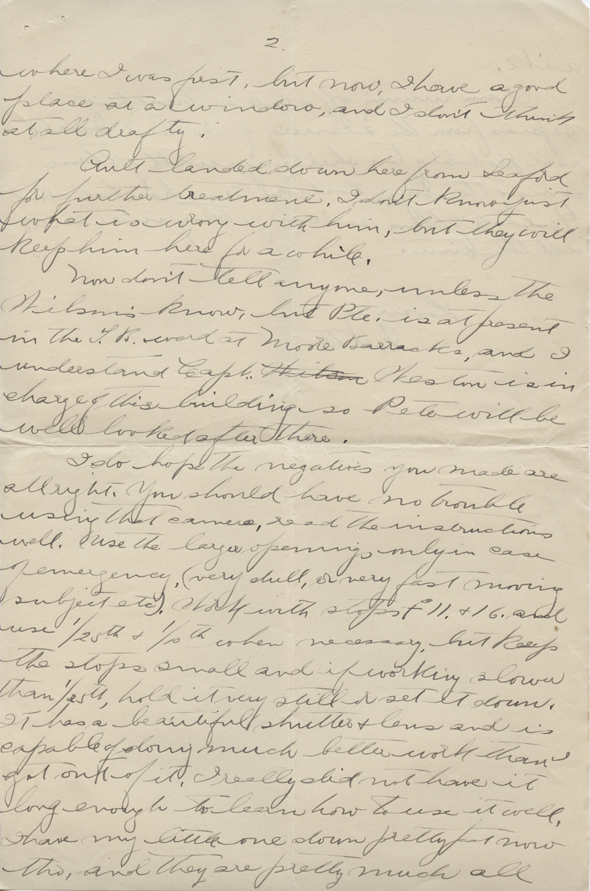 2.
where I was first, but now, I have a good
place at a window, and I don't think
at all drafty.
Ault landed down here from Seaford
for further treatment. I don't know just
what is wrong with him, but they will
keep him here for a while.
Now don't tell anyone, unless the
Wilson's know, but Pte. is at present
in the T.B. ward at Moore Barracks, and I
understand Capt. Weston is in
charge of this building so Pete will be
well looked after there.
I do hope the negatives you made are
all right. You should have no trouble
using that camera, read the instructions
well. Use the larger openings only in case
of emergency, (very dull, or very fast moving
subject etc). Work with stops F 11. & 16. and
use 1/25th & 1/10th when necessary, but keep
the stops small and if working slower
than 1/25th, hold it very still or set it down.
It has a beautiful shutter & lens and is
capable of doing much better work than I
got out of it. I really did not have it
long enough to learn how to use it well.
I have my little one down pretty pat now
tho, and they are pretty much all